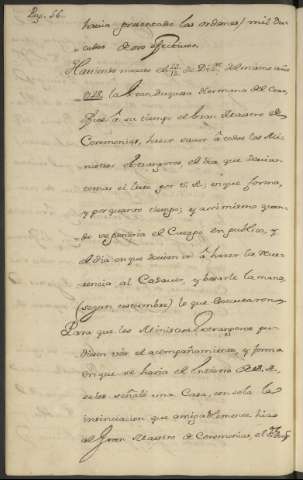 Pag. 56.
havia presentado las ordenes, mil du-
cados de oro efectivos.
Haviendo muerto el 22/12 de Diz.re del mismo año
1728. la Gran Duquesa Hermana del Czar,
dio à su tiempo el Gran Maestro de
Ceremonias, hacer saver à todos los Mi-
nistros estrangeros el dia, que devian
tomar el luto por S. A; en que forma,
y por quanto tiempo; y asi mismo quan-
do se pondria el Cuerpo en publico, y
el dia en que devian ir à hacer la reve-
rencia al Cadaver, y besarle la mano
(segun costumbre) lo que executaron.
Para que los Ministros estrangeros pu-
diesen vèr el acompañamiento, y forma
en que se haria el Entierro de S. A.
se les señalò una Casa, con sola la
insinuacion que amigablemente hizo
al Gran Maestro de Ceremonias, el